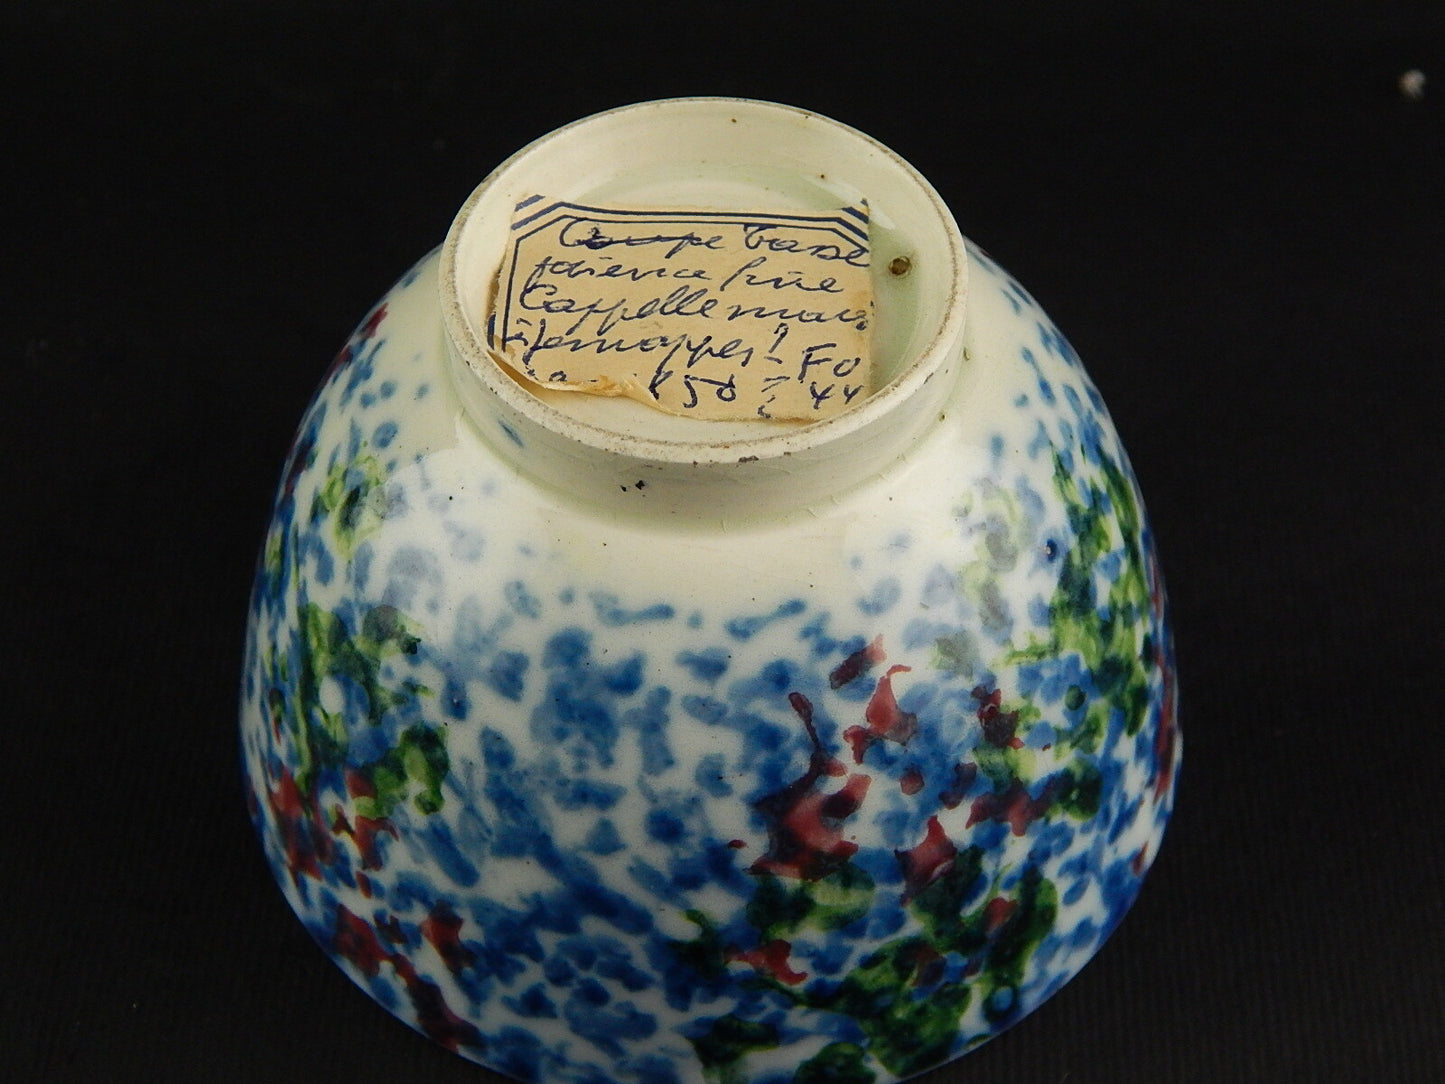 Coupe Tasse
faïence fine
Cappellemans
Jemappes! Fo
1850 ? 44